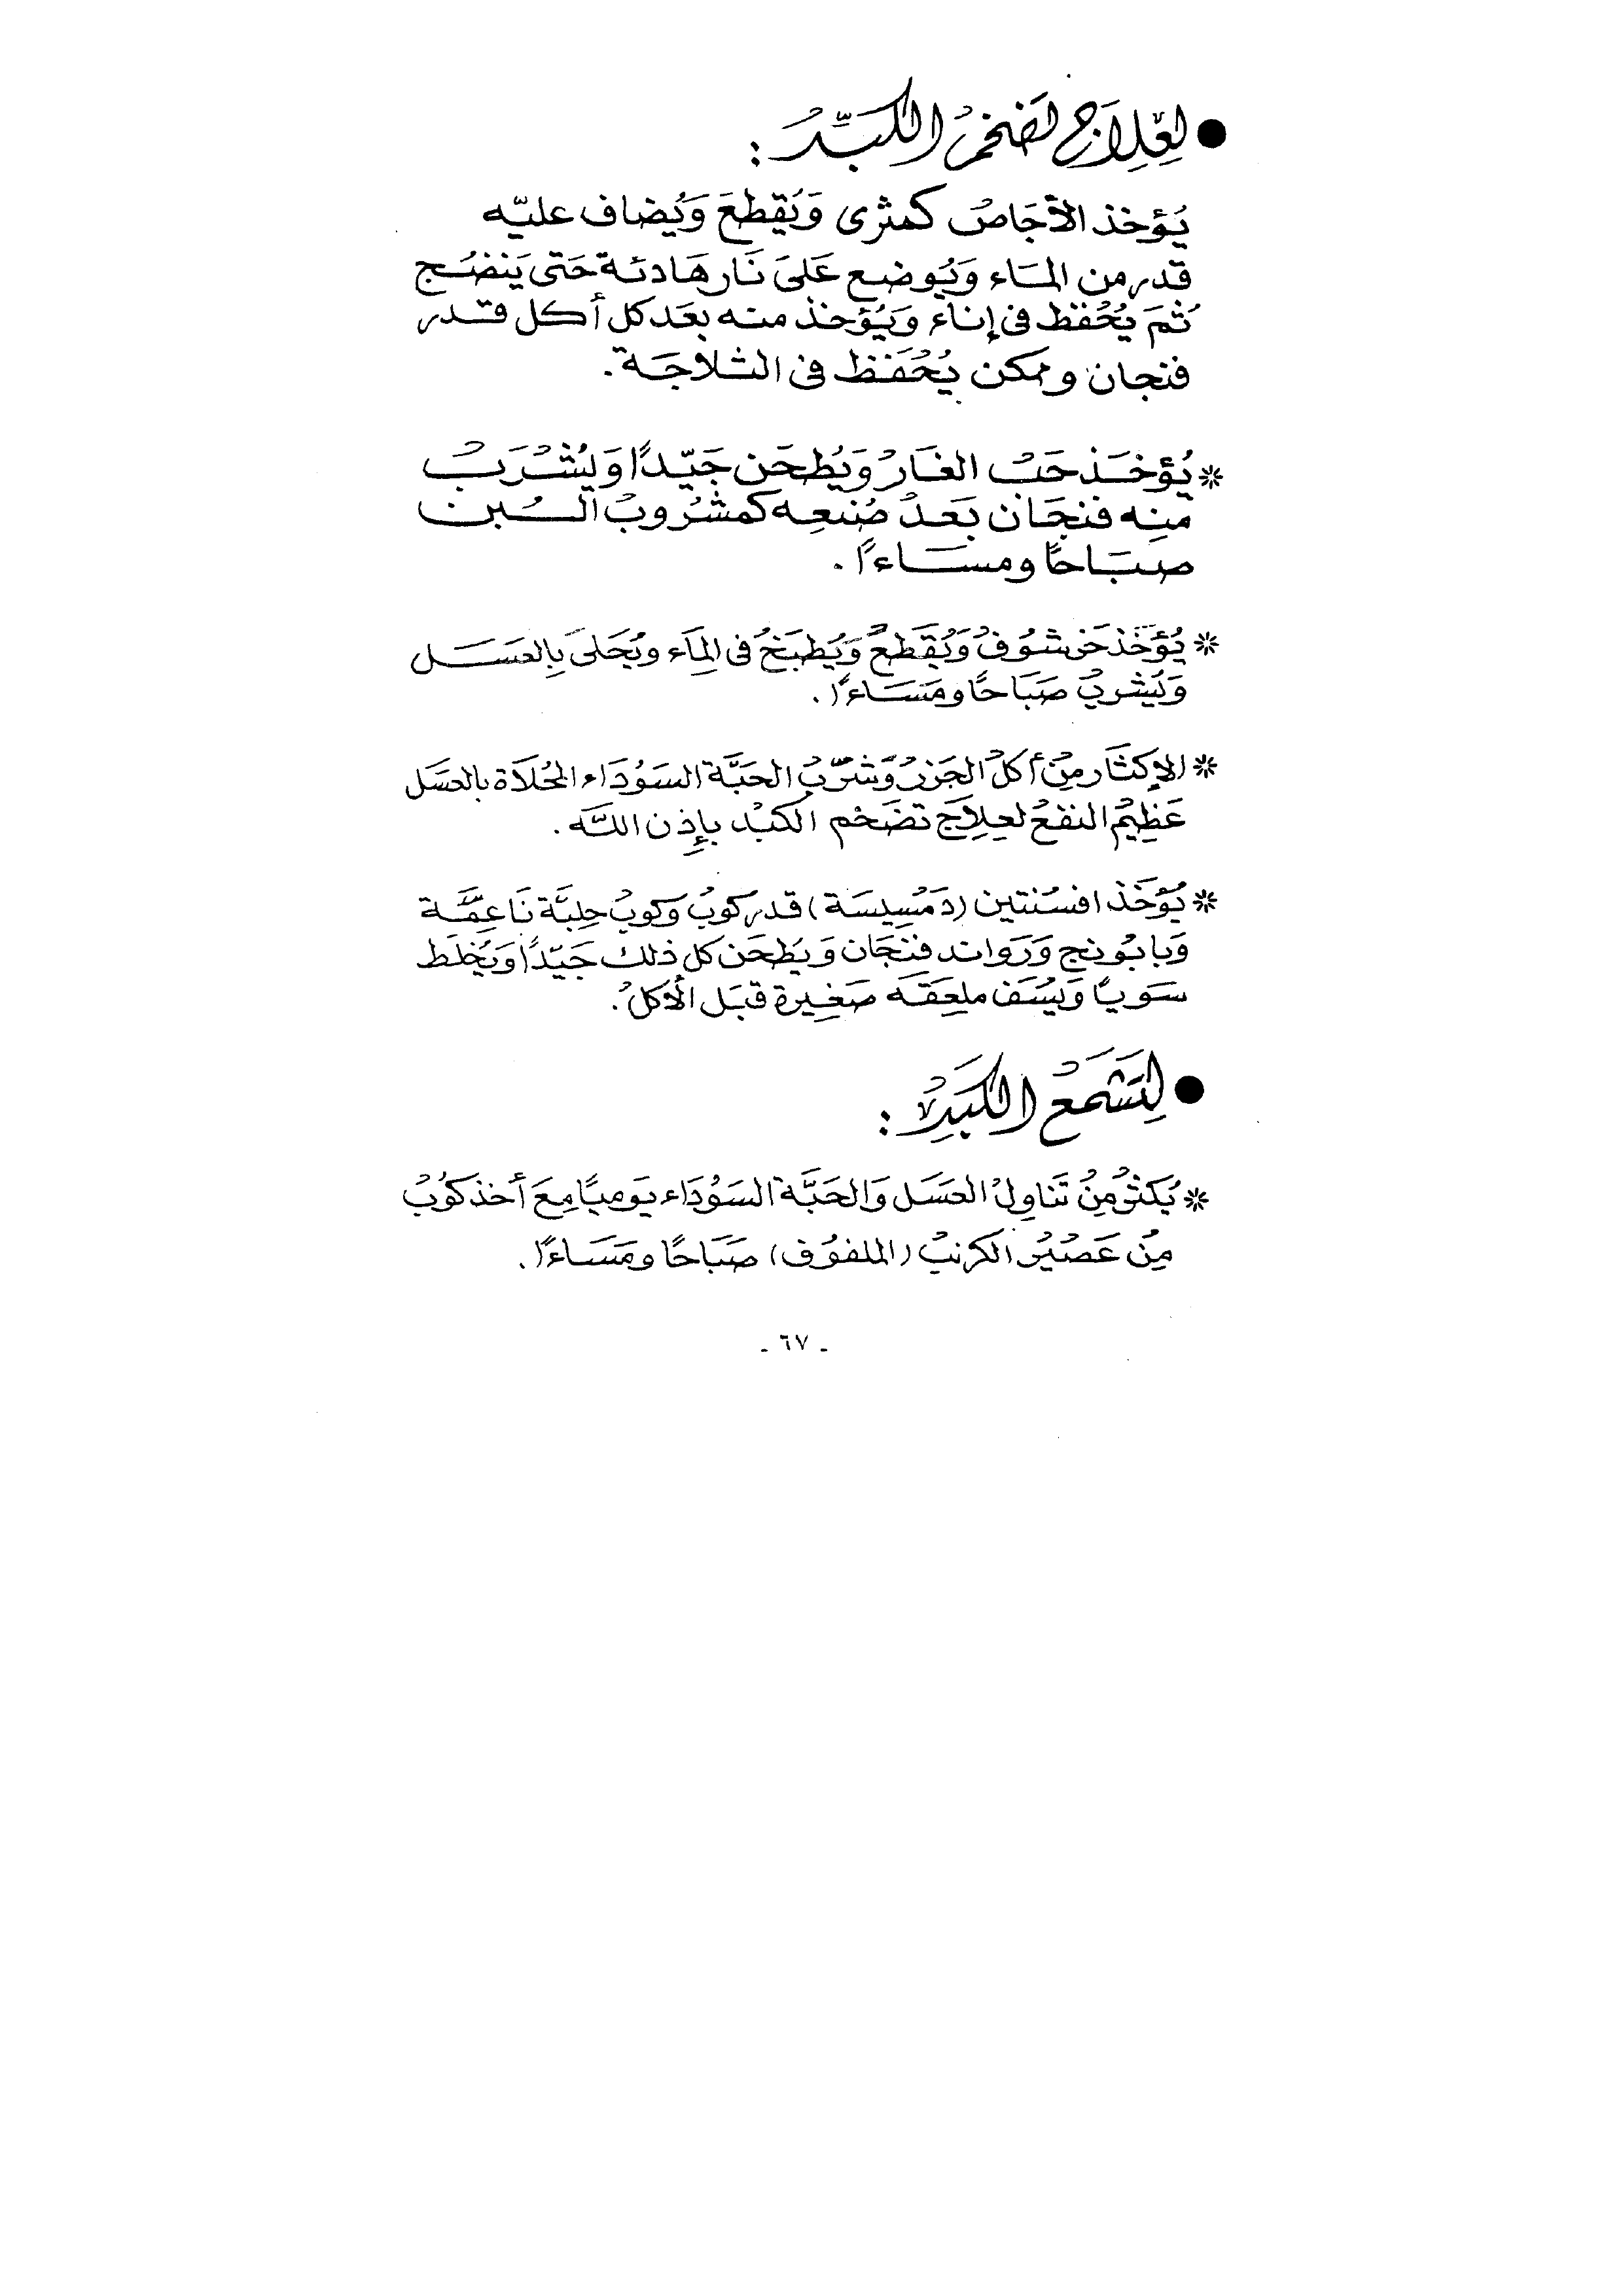 ● لِعِلَاج تضخم الكَبِد :
يُؤخذ الأجَاص كمثرى وَيُقطعَ وَيُضاف عليه
قدر من المَاء وَيُوضع عَلىَ نَار هَادئة حَتى يَنضُج
ثمَ يُحْفظ فى إناء وَيُؤخذ منه بعَد كل أكل قدر
فنجان وممكن يُحْفَظ فى الثلاجَة .
* يُؤخَذ حَبْ الغَارْ وَيُطحَن جَيّدًا وَيُشْرَبْ
مِنه فنجَان بَعَدْ صُنعِه كمشْرُوبْ البُن
صبَاحًا ومسَاءًا .
* يُؤخَذ خَرشُوفْ وَيُقَطعْ وَيُطبَخْ فى المَِاء ويُحَلىَ بِالعسَل
وَيُشربْ صَبَاحًا ومَسَاءًا .
* الإكثَار مِنْ أكلْ الجَزرْ وَشرْبْ الحَبَّة السَوْدَاء المُحَلاَة بالعسَل
عَظِيمْ النفعْ لعِلاَجَ تضَخم الكبْد بإذن اللَّه .
* يُؤخَذ افسَنتين (دَمْسِيسَة) قدر كوبْ وَكوبْ حِلبَّة نَاعِمَّة
وَبابُونج وَرَواند فنجَان وَيطحَن كل ذلك جَيّدًا وَيُخلَط
سَويًا وَيسَف ملعِقَه صَغِيرة قبَل الأكلْ .
● لِتَشَمعْ الكَبِدْ :
* يُكثرْ مِنْ تَناوِلْ العسَل وَالحَبَّة السَوْدَاء يَوميًا مِعَ أخذ كوُبْ
مِنْ عَصْيرْ الكرنبْ (الملفوُف) صَبَاحًا ومَسَاءًا .
- ٦٧ -